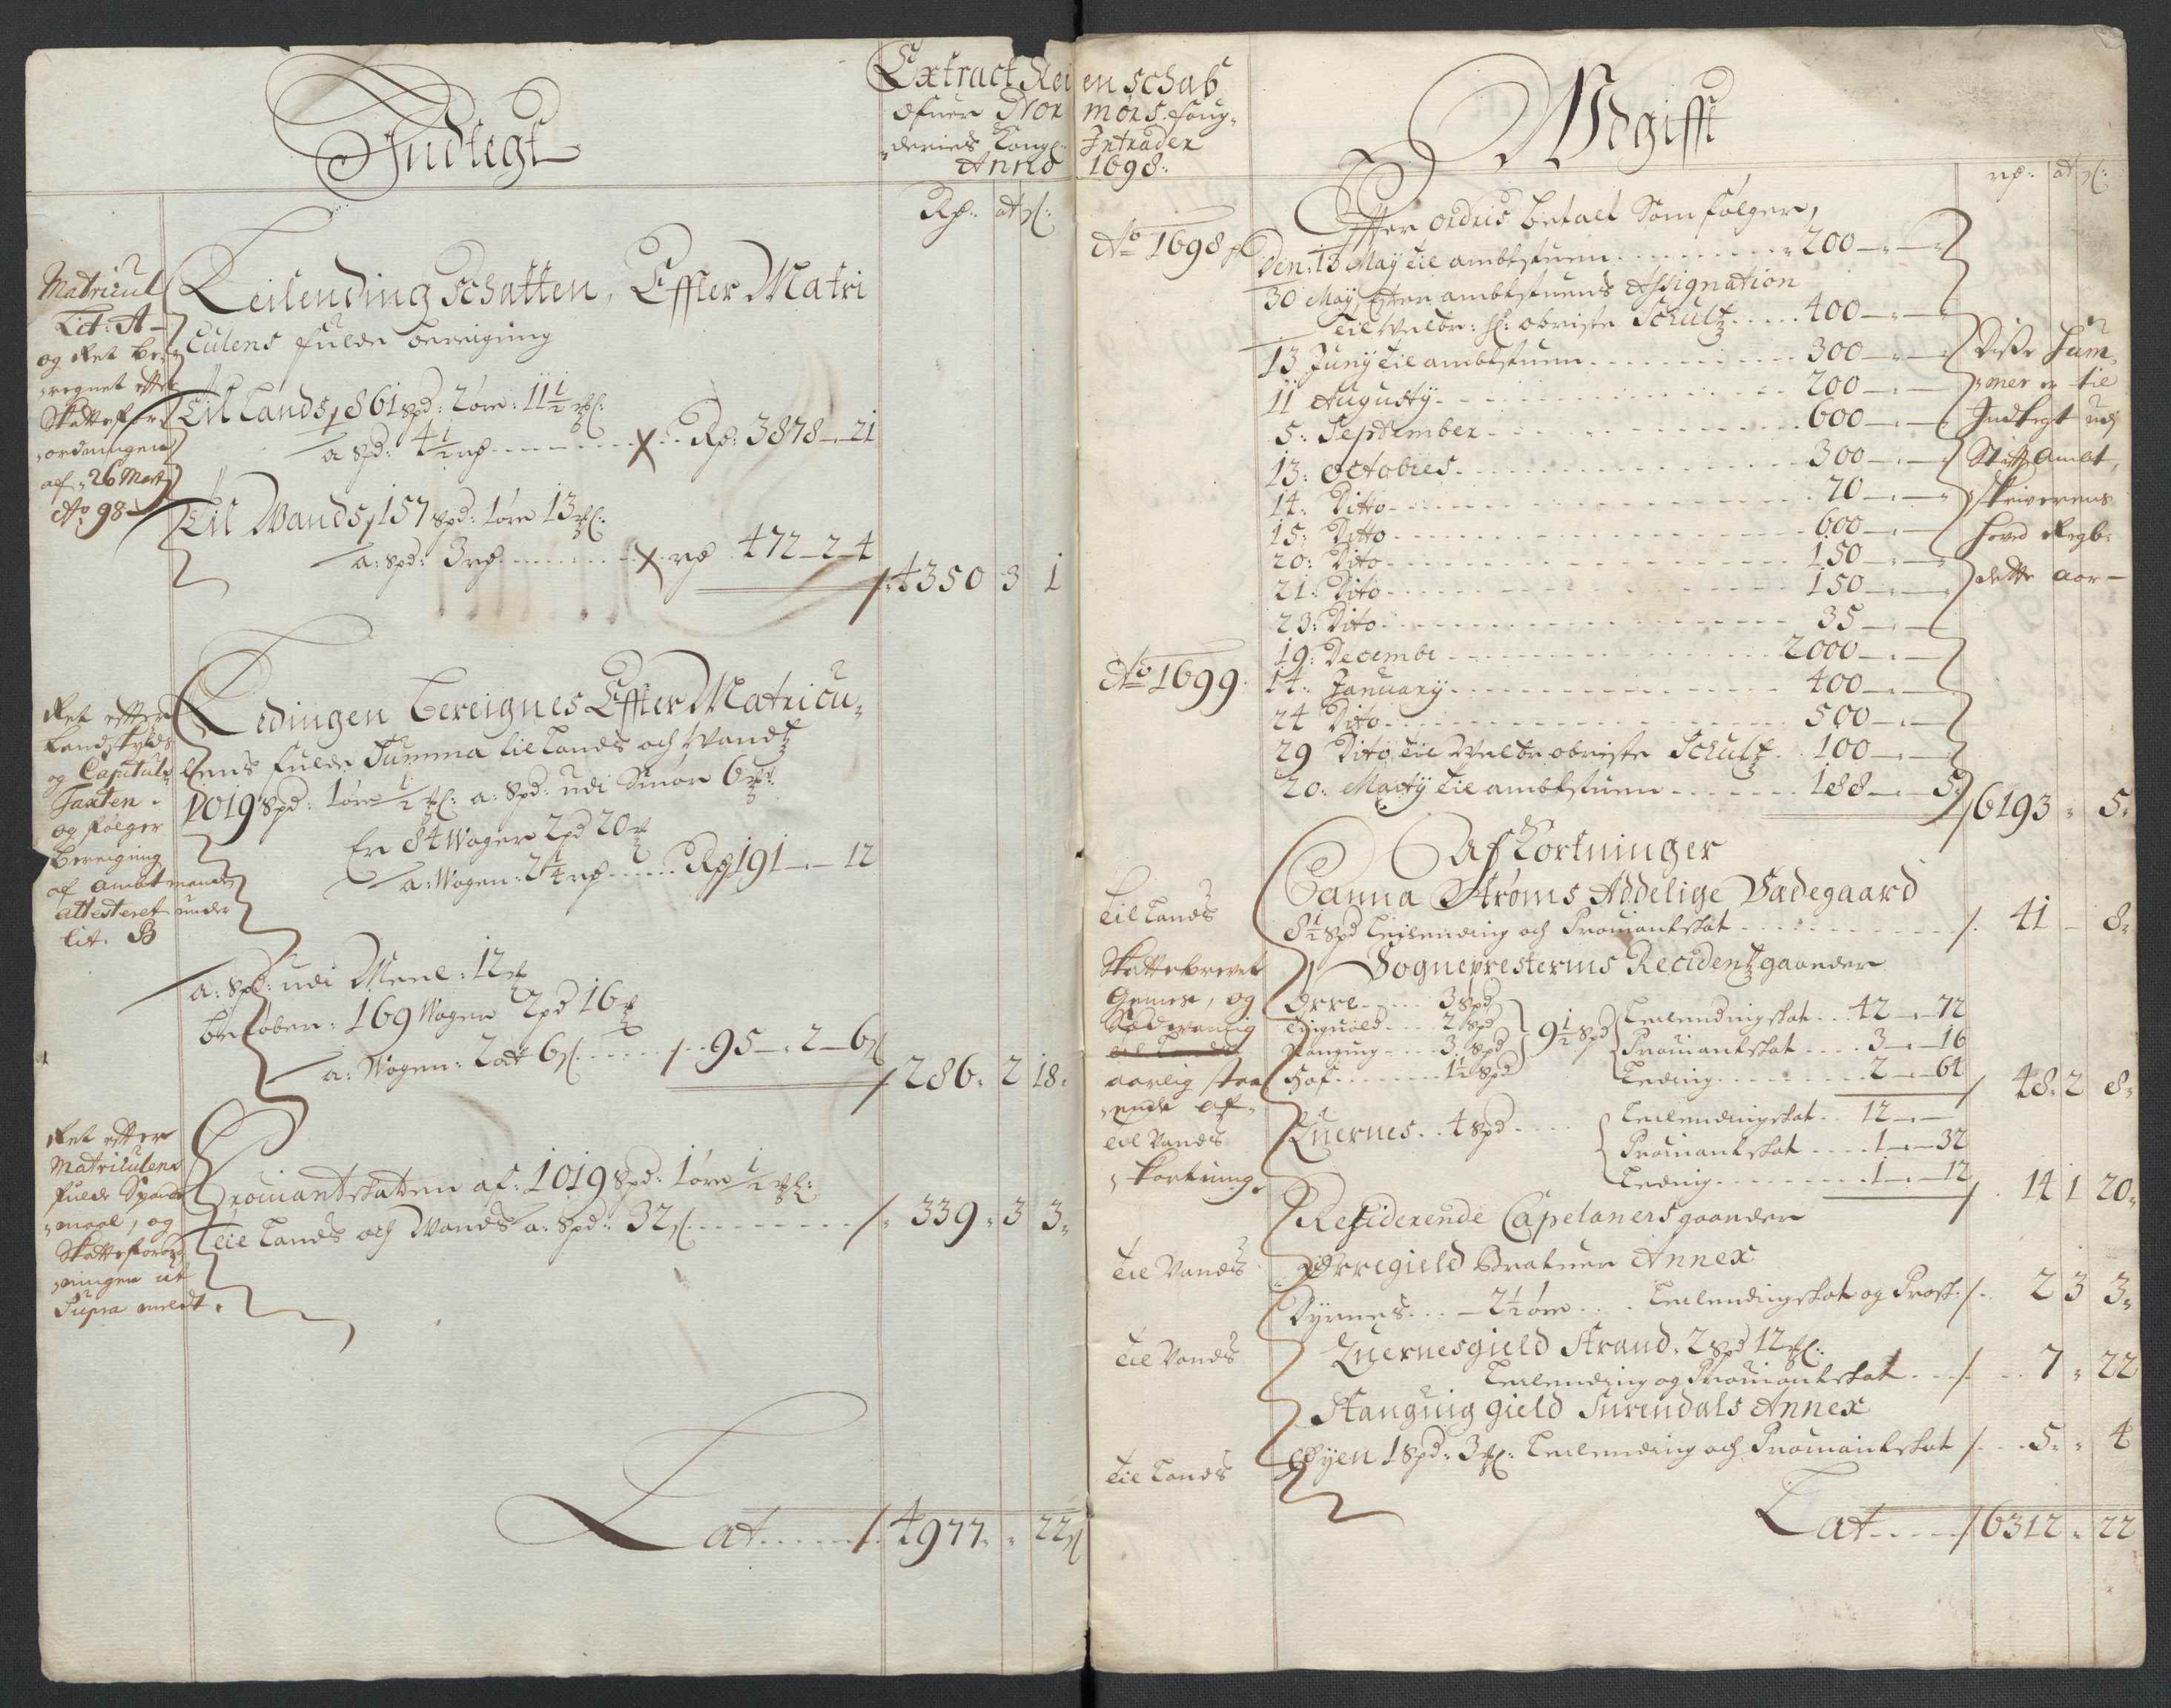 Indtegt
Extract Rei enschab
ofuer Nor mørs foug,
deries Kongl: Intrader
Anno 1698:
Rp: ort sl:
Matricul
Lit: A
og Ret be,
regnet efter
Skattefor
ordningen
af 26 Mart
Ao 98
Leilending Schatten, Effter Matri
Culens fulde bereigning
Til Lands, 861 spd: 2 øre: 11½ ml:
a spd: 4½ rp Rp: 3878 - 21
Til Wands, 157 spd: 1 øre 13 ml:
a: spd: 3 rp rp 472 - 2 - 4
4350 3 1
Ret efter
Landskylds
og Capituls
Taxten.
og følger
bereigning
af ambtmanden
attesteret under
Lit. B
Ledingen bereignes Effter Matricu,
lens fulde Summa til Lands och Wandtz
1019 spd: 1 øre ½ ml: a: spd: udi Smør 6
Er 84 Woger 2 pd 20
a: Wogen: 2¼ rp Rp 191 - 12
a: spd: udi Meel: 12
beløber: 169 Woger 2 pd 16
a: Wogen: 2 ort 6 sl 95 - 2 - 6 sl
286 2 18
Ret efter
Matriculens
fulde Spande
maal, og
Skatteforord
ningen ut
Supra meldt.
Prouiantskatten af: 1019 spd: 1 øre ½ ml:
til Lands och Wands a: spd: 32 sl 339 3 3
Lat 4977 22 sl
Udgifft
rp: ort sl:
Effter ordris betalt Som følger,
Ao 1698
Den: 13 Maij til ambtstuen 200
30 Maij Efter ambtstuens Assignation
til Welbr: Hr: obriste Schultz 400
13 Junij til ambtstuen 300
11 Augustij 200
5: September 600
13: Octobris 300
14: Ditto 70
15: Ditto 600
20: Dito 150
21: Dito 150
23: Dito 35
19: Decembr 2000
Ao 1699
14: Januarij 400
24 Dito 500
29 Dito til Welbr obriste Schultz 100
20: Martij til ambtstuen 188 - 5
Disse Sum,
mer er til
Indtegt udj
Stiftz Ambt,
skriverens
hoved Regb:
dette aar
6193 5
Afkortninger
Til Lands
Sanna Strøms Addelige Sædegaard
8½ spd Leilending och Prouiantskat 41 - 8
Skattebrevet
Gemes, og
Sædvanlig
til Lands
aarlig staa
ende af,
til Vands
kortning.
Sognepresternis Recidentzgaarder
Ørre 3 spd
Tinguold 2 spd
Stangvig 3 spd
Hof 1½ spd
9½ spd
Leilendingskat 42 - 72
Prouiantskat 3 - 16
Leding 2 - 64
48 2 8
Quernes 4 spd
Leilendingskat 12
Prouiantskat 1 - 32
Leding 1 - 12
14 1 20
Residerende Capelaners gaarder
til Vands
Ørregield Bratuer Annex
Dyrnes 2½ øre Leilendingskat og Prosk. 2 3 3
til Vands
Quernesgield Strand. 2 spd 12 ml:
Leilending og Prouiantskat 7 22
Stanguig gield Surendals Annex
til Lands
Øyen 1 spd: 3 ml: Leilending och Prouiantskat 5 4
Lat 6312 22